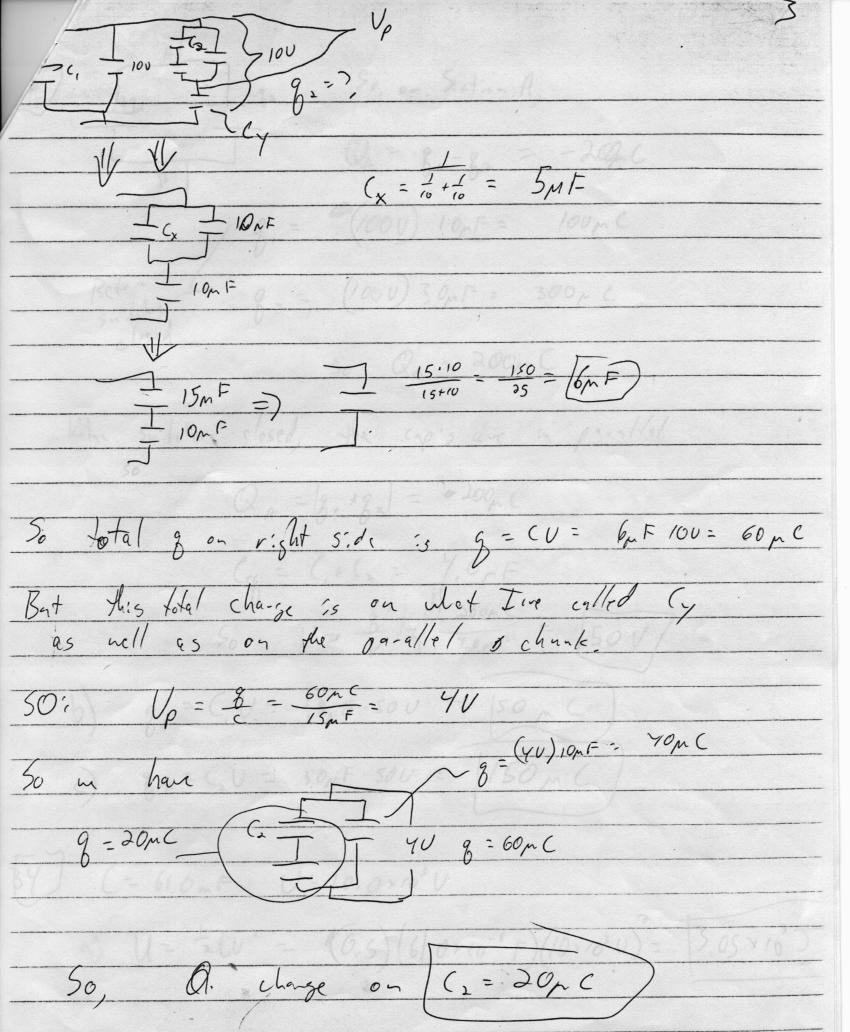 3
C₁ 10V C₂ 10V Vₚ
q₂ = ?
C_y
C_x = 1/(1/10 + 1/10) = 5μF
C_x 10μF
10μF
15μF ⇒ 15·10/15+10 = 150/25 = 6μF
10μF
So total q on right side is q = CV = 6μF 10V = 60μC
But this total charge is on what I've called C_y
as well as on the parallel chunk.
SO: Vₚ = q/C = 60μC/15μF = 4V
So we have q = (4V)10μF = 40μC
q = 20μC C₂ 4V q = 60μC
So, Q. charge on C₂ = 20μC